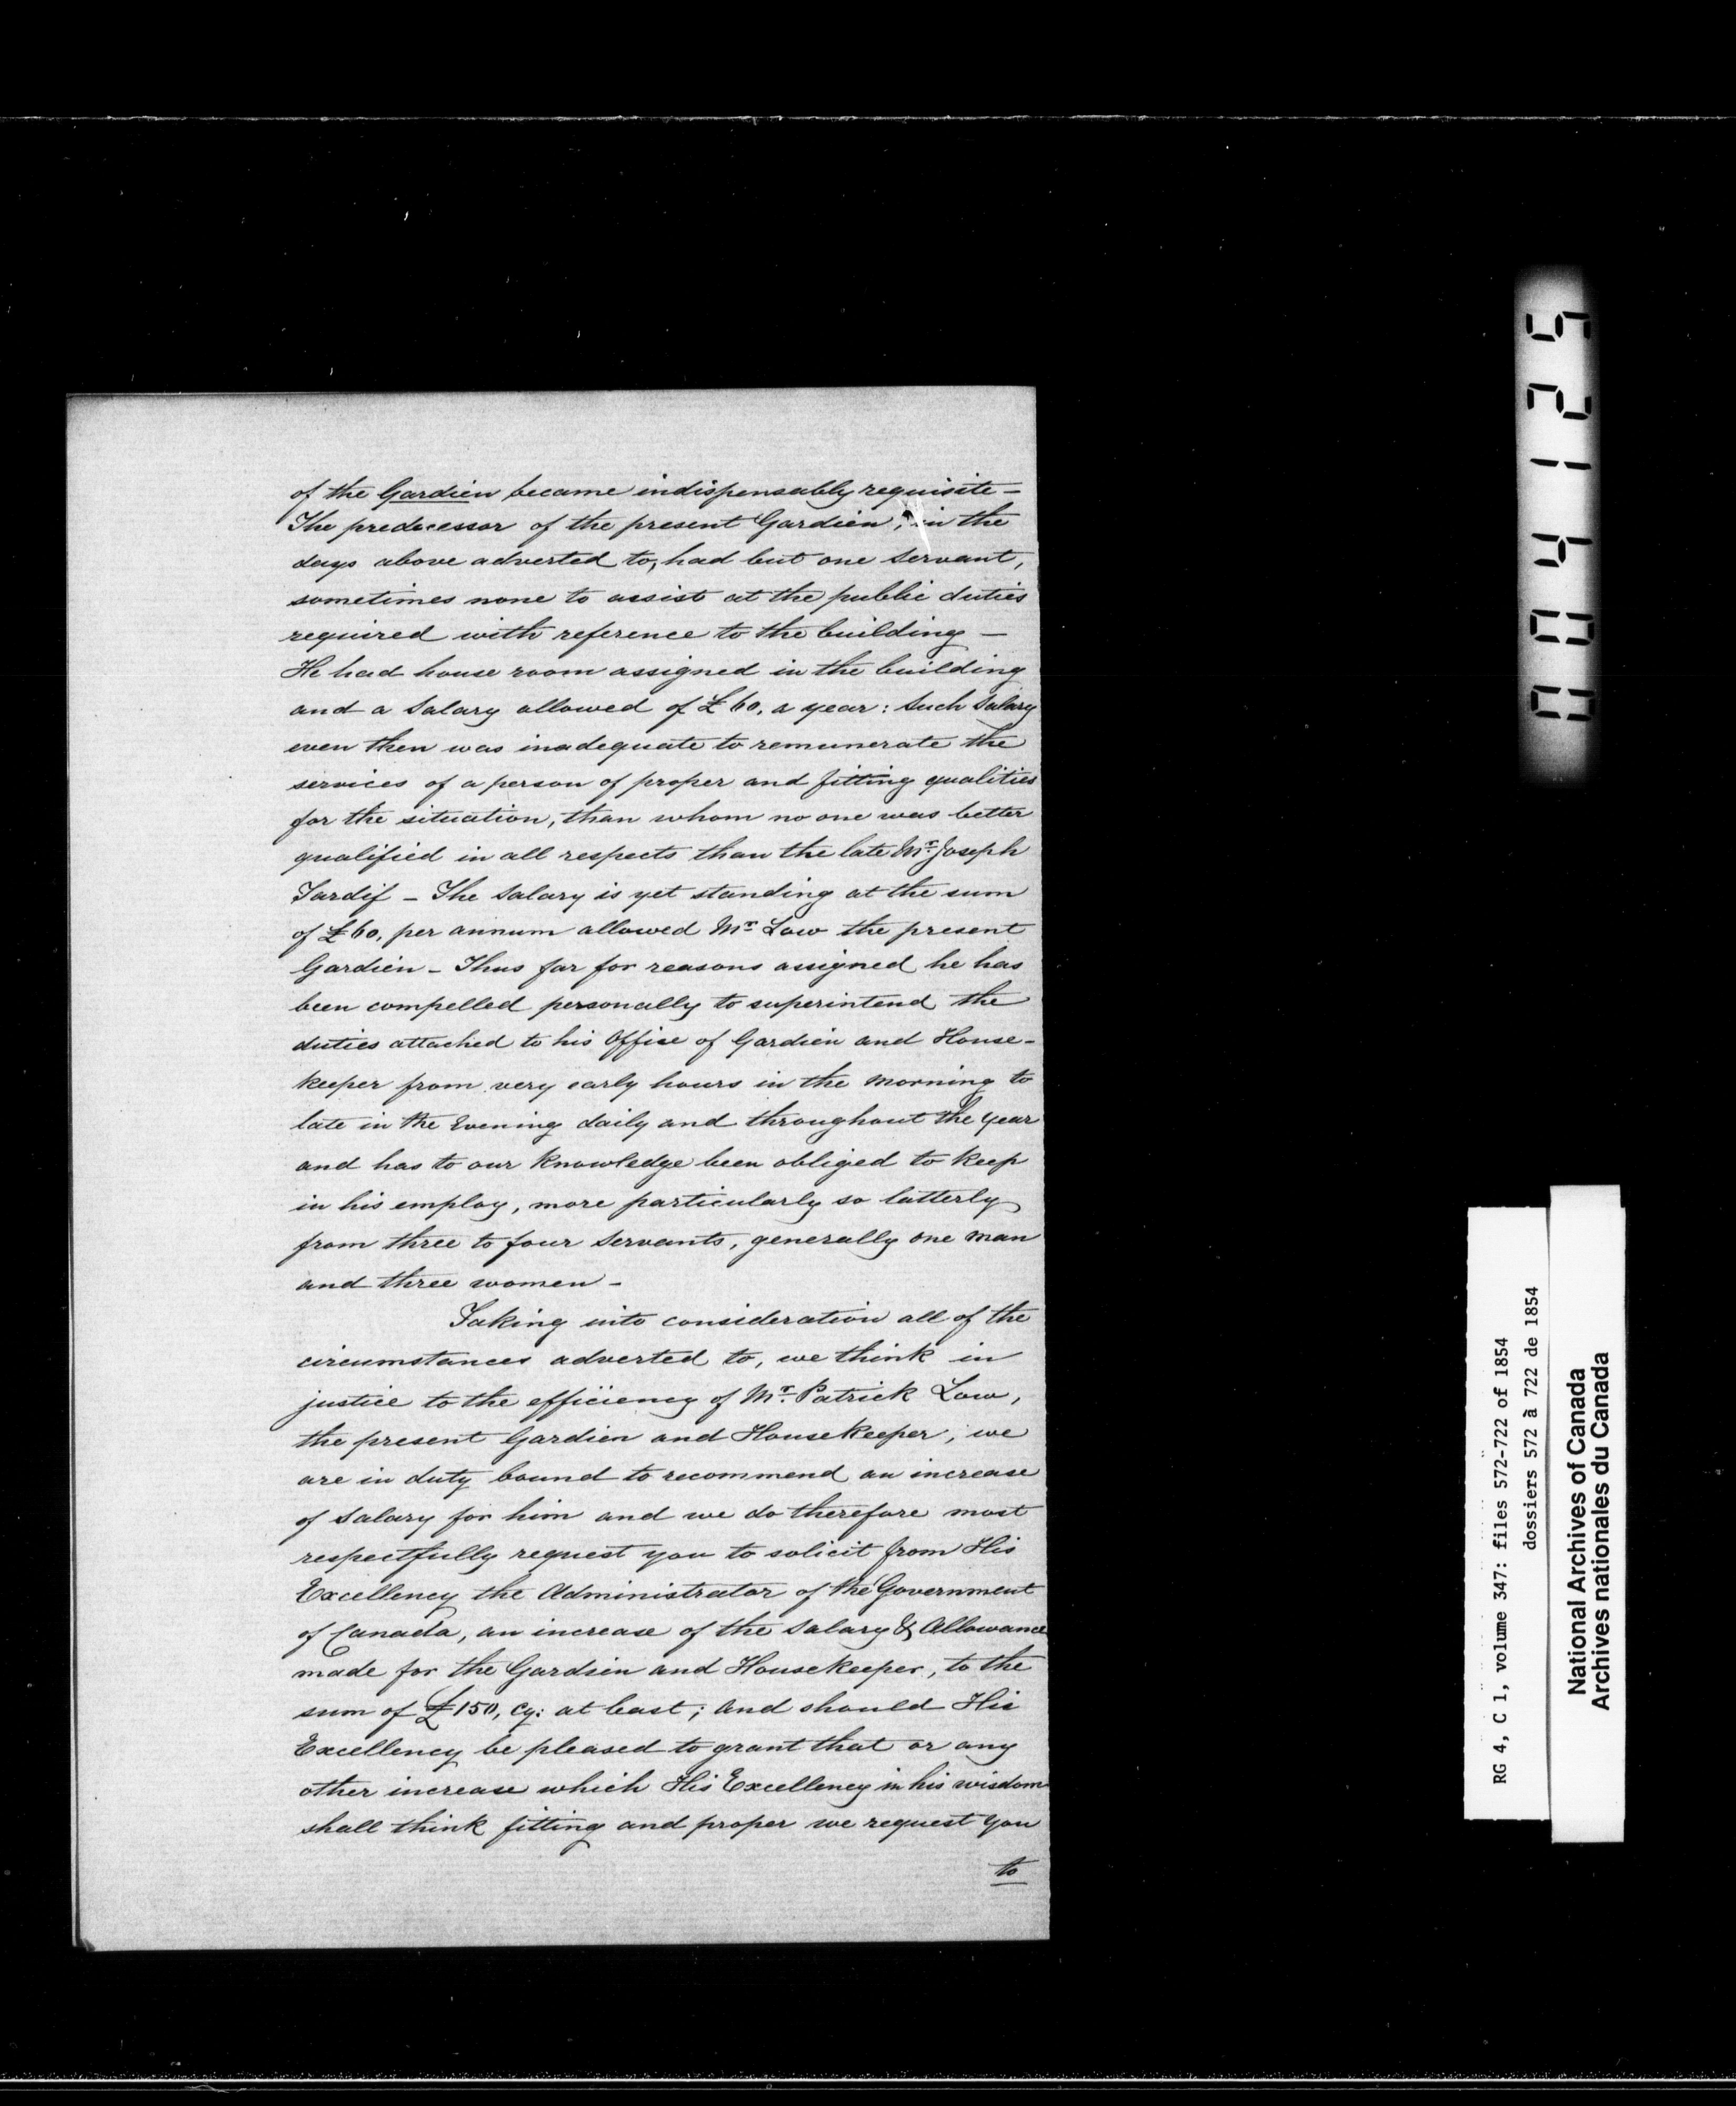 of the Gardien became indispensably requisite –
The predecessor of the present Gardien, in the
days above adverted to, had but one servant,
sometimes none to assist at the public duties
required with reference to the building –
He had house room assigned in the building
and a Salary allowed of £60, a year: Such Salary
even then was inadequate to remunerate the
services of a person of proper and fitting qualities
for the situation, than whom no one was better
qualified in all respects than the late Mr. Joseph
Tardif – The Salary is yet standing at the sum
of £60, per annum allowed Mr. Low the present
Gardien – Thus far for reasons assigned he has
been compelled personally to superintend the
duties attached to his Office of Gardien and House-
keeper from very early hours in the morning to
late in the Evening daily and throughout the year
and has to our knowledge been obliged to keep
in his employ, more particularly so latterly
from three to four Servants, generally one man
and three women –
Taking into consideration all of the
circumstances adverted to, we think in
justice to the efficiency of Mr. Patrick Low,
the present Gardien and Housekeeper, we
are in duty bound to recommend an increase
of Salary for him and we do therefore most
respectfully request you to solicit from His
Excellency the Administrator of the Government
of Canada, an increase of the Salary & Allowance
made for the Gardien and Housekeeper, to the
sum of £150, Cy: at least; and should His
Excellency be pleased to grant that or any
other increase which His Excellency in his wisdom
shall think fitting and proper we request you
to
004125
RG 4, C 1, volume 347: files 572-722 of 1854
dossiers 572 à 722 de 1854
National Archives of Canada
Archives nationales du Canada